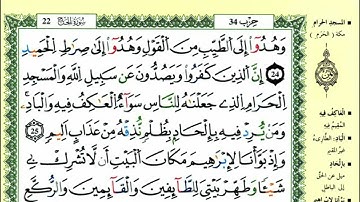 22 سُورَةُ الحَجّ حِزْب 34
وَهُدُوٓا۟ إِلَى ٱلطَّيِّبِ مِنَ ٱلْقَوْلِ وَهُدُوٓا۟ إِلَىٰ صِرَٰطِ ٱلْحَمِيدِ
24 إِنَّ ٱلَّذِينَ كَفَرُوا۟ وَيَصُدُّونَ عَن سَبِيلِ ٱللَّهِ وَٱلْمَسْجِدِ
ٱلْحَرَامِ ٱلَّذِے جَعَلْنَٰهُ لِلنَّاسِ سَوَآءٌ ٱلْعَٰكِفُ فِيهِ وَٱلْبَادِۦ
وَمَن يُرِدْ فِيهِ بِإِلْحَادِۭ بِظُلْمٍ نُّذِقْهُ مِنْ عَذَابٍ أَلِيمٍ 25
وَإِذْ بَوَّأْنَا لِإِبْرَٰهِيمَ مَكَانَ ٱلْبَيْتِ أَن لَّا تُشْرِكْ بِے
شَيْـًٔا وَطَهِّرْ بَيْتِيَ لِلطَّآئِفِينَ وَٱلْقَآئِمِينَ وَٱلرُّكَّعِ
المسجد الحرام
مكة (الحرم)
العاكف فيه
المقيم فيه
الباد: الطارئ
غير المقيم
بإلحاد
ميل عن الحق
إلى الباطل